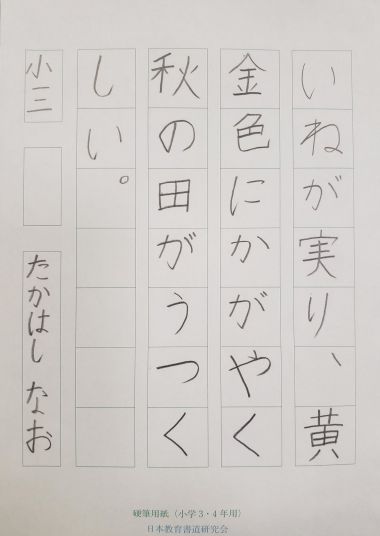 いねが実り、黄
金色にかがやく
秋の田がうつく
しい。
小三
たかはし なお
硬筆用紙（小学3・4年用）
日本教育書道研究会